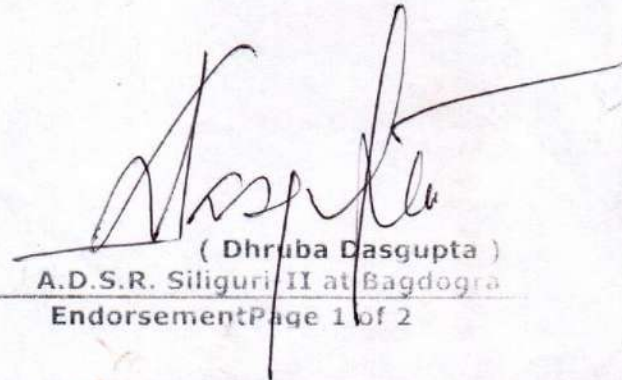 Dasgupta
( Dhruba Dasgupta )
A.D.S.R. Siliguri II at Bagdogra
EndorsementPage 1 of 2